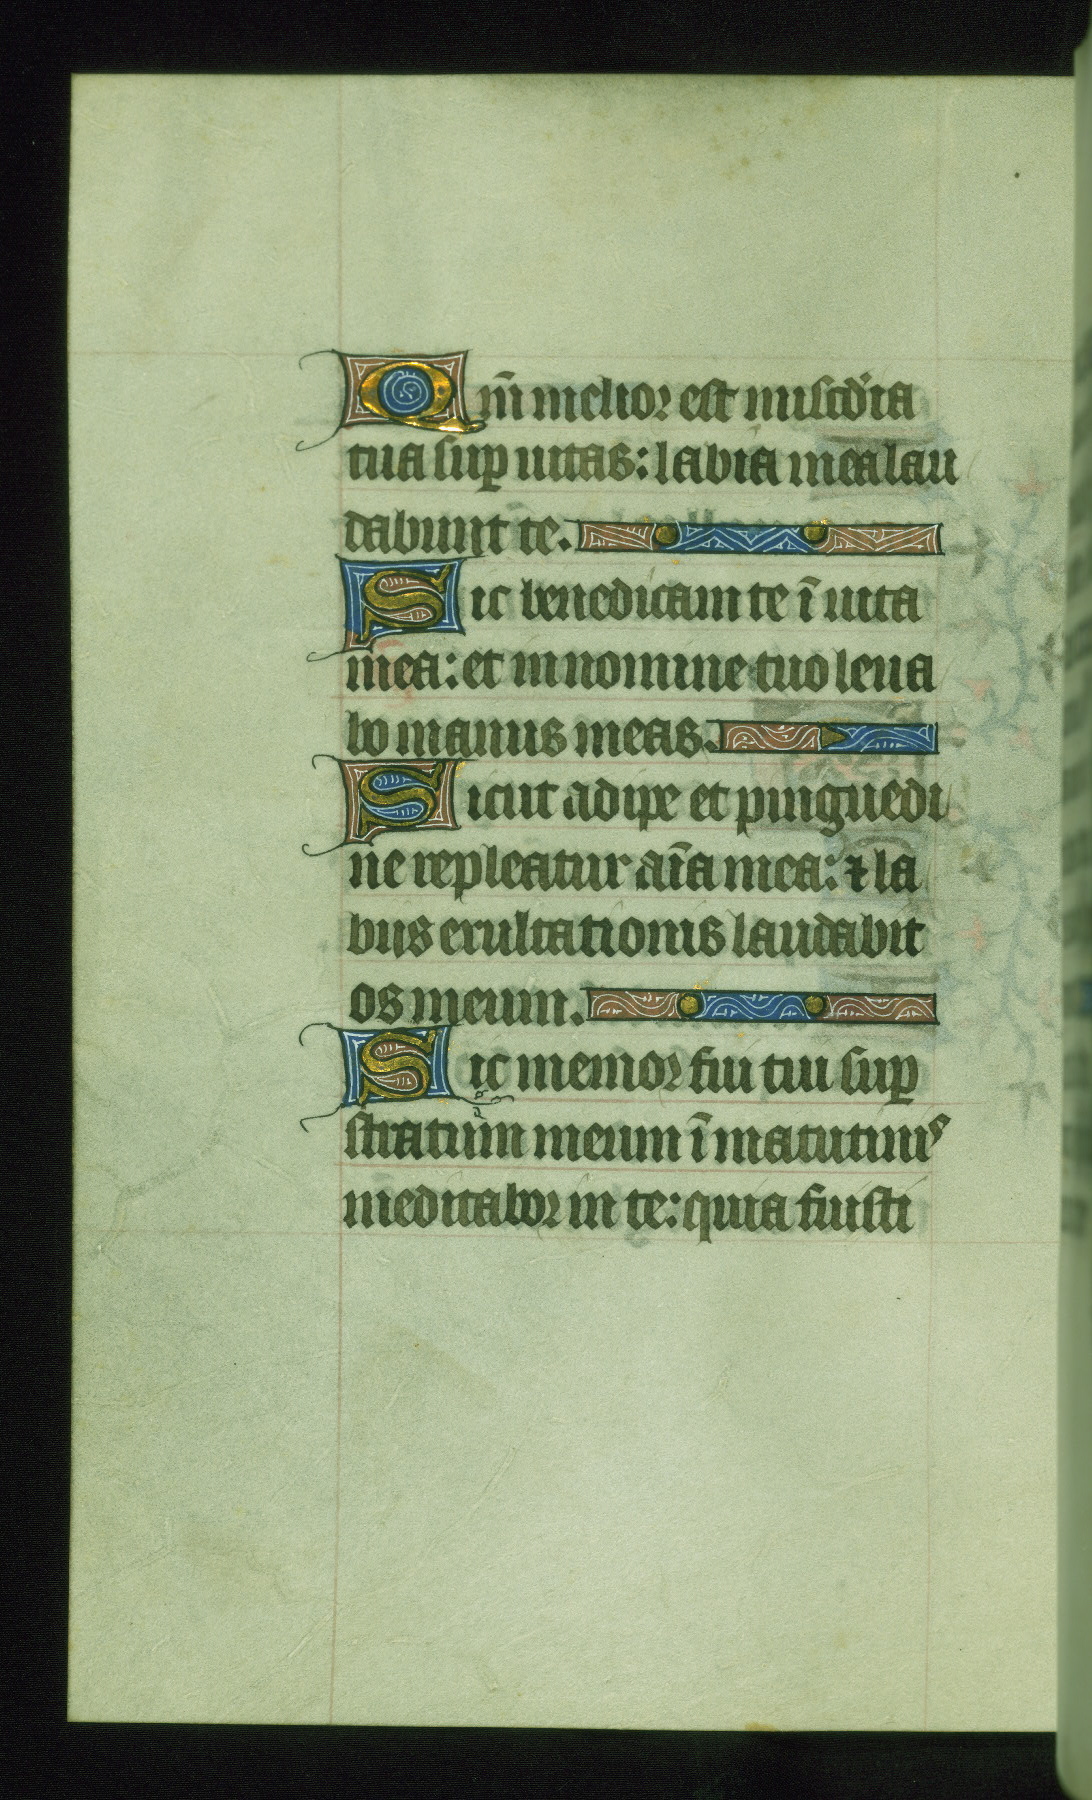 Qm̄ melior est misc̄dia
tua sup uitas: labia mea lau
dabunt te.
Sic benedicam te ī uita
mea: et in nomine tuo leua
bo manus meas.
Sicut adipe et pinguedi
ne repleatur aīa mea: ⁊ la
biis exultationis laudabit
os meum.
Sic memor fui tui sup
stratum meum ī matutinis
meditabor in te: quia fuisti